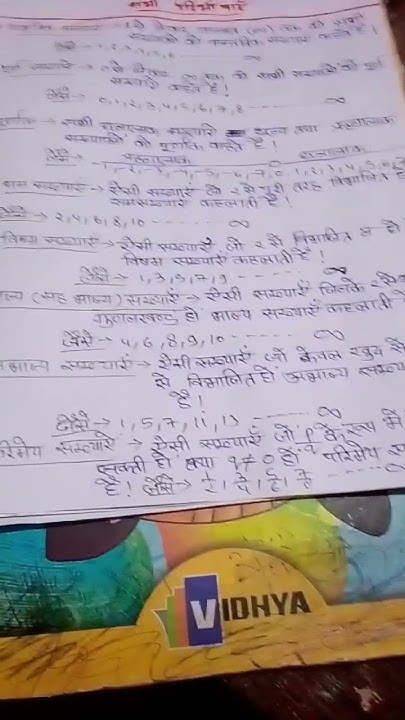 सभी परिभाषाएँ
प्राकृतिक संख्याएँ → 1 से लेकर अनन्त (∞) तक की सभी
संख्याओं को प्राकृतिक संख्याएँ कहते हैं!
जैसे → 1, 2, 3, 4, 5, 6 ------ ∞
संख्याएँ → 0 से लेकर ∞ तक की सभी संख्याओं को पूर्ण
संख्याएँ कहते हैं!
जैसे → 0, 1, 2, 3, 4, 5, 6, 7, 8 ------ ∞
पूर्णांक → सभी धनात्मक संख्याएँ शून्य तथा ऋणात्मक
संख्याओं को पूर्णांक कहते हैं!
जैसे → ऋणात्मक 0 धनात्मक
सम संख्याएँ → ऐसी संख्याएँ जो 2 से पूरी तरह विभाजित हो
समसंख्याएँ कहलाती हैं!
जैसे → 2, 4, 6, 8, 10 ------ ∞
विषम संख्याएँ → ऐसी संख्याएँ जो 2 से विभाजित न हो
विषम संख्याएँ कहलाती हैं!
जैसे → 1, 3, 5, 7, 9 ------ ∞
भाज्य (सह भाज्य) संख्याएँ → ऐसी संख्याएँ जिनके 2 से
गुणनखण्ड हो भाज्य संख्याएँ कहलाती
जैसे → 4, 6, 8, 9, 10 ------ ∞
अभाज्य संख्याएँ → ऐसी संख्याएँ जो केवल खुद से
से विभाजित हो अभाज्य संख्या
हैं!
जैसे → 1, 5, 7, 11, 13 ------ ∞
परिमेय संख्याएँ → ऐसी संख्याएँ जो p/q के रूप में
सकती हो तथा q ≠ 0 हो परिमेय
हैं! जैसे →
VIDHYA